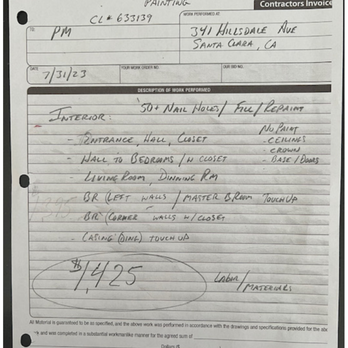 PAINTING
Contractors Invoice
CL# 633139
WORK PERFORMED AT:
TO:
PM
341 HILLSDALE AVE
SANTA CLARA, CA
DATE
7/31/23
YOUR WORK ORDER NO.
OUR BID NO.
DESCRIPTION OF WORK PERFORMED
INTERIOR: '50+ NAIL HOLES / FILL / REPAINT
NO PAINT
- ENTRANCE, HALL, CLOSET
- CEILINGS
- CROWN
- HALL TO BEDROOMS / N CLOSET
- BASE / DOORS
- LIVING ROOM, DINNING RM
- BR (LEFT WALLS / MASTER BROOM TOUCH UP
- BR (CORNER WALLS W/ CLOSET
- CASING (DING) TOUCH UP
$1,425
LABOR /
MATERIALS
All Material is guaranteed to be as specified, and the above work was performed in accordance with the drawings and specifications provided for the
and was completed in a substantial workmanlike manner for the agreed sum of